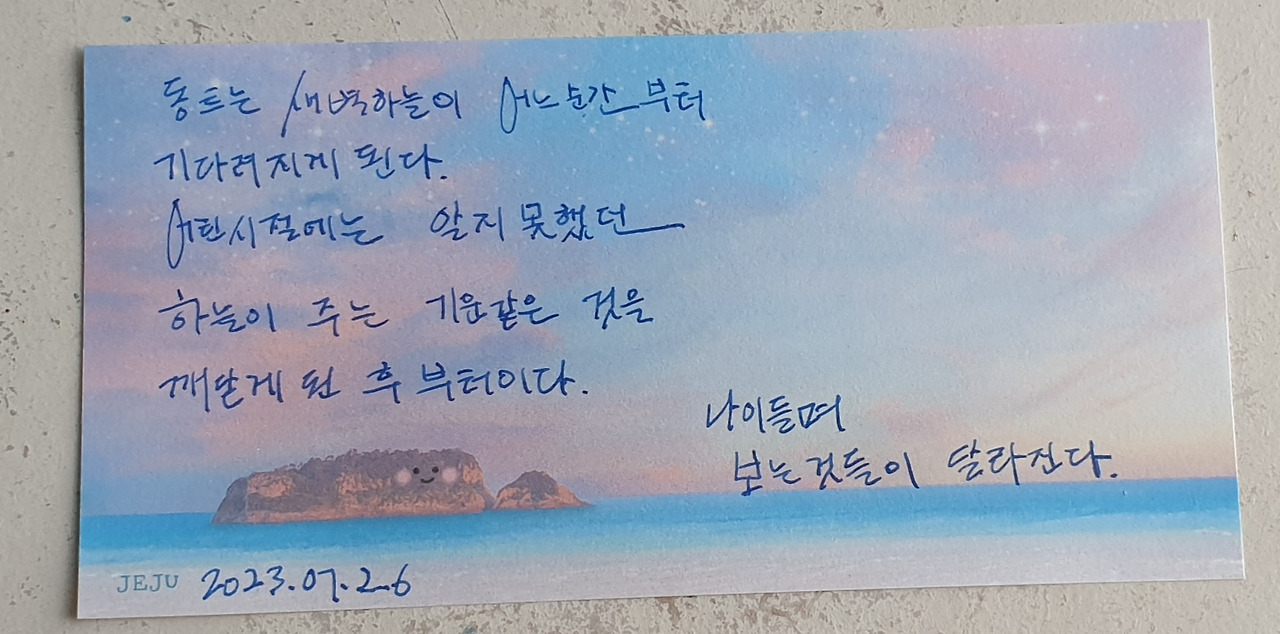 동트는 새벽하늘이 어느 순간부터
기다려지게 된다.
어린시절에는 알지 못했던
하늘이 주는 기운같은 것을
깨닫게 된 후 부터이다.
나이들며
보는것들이 달라진다.
JEJU 2023.07.26